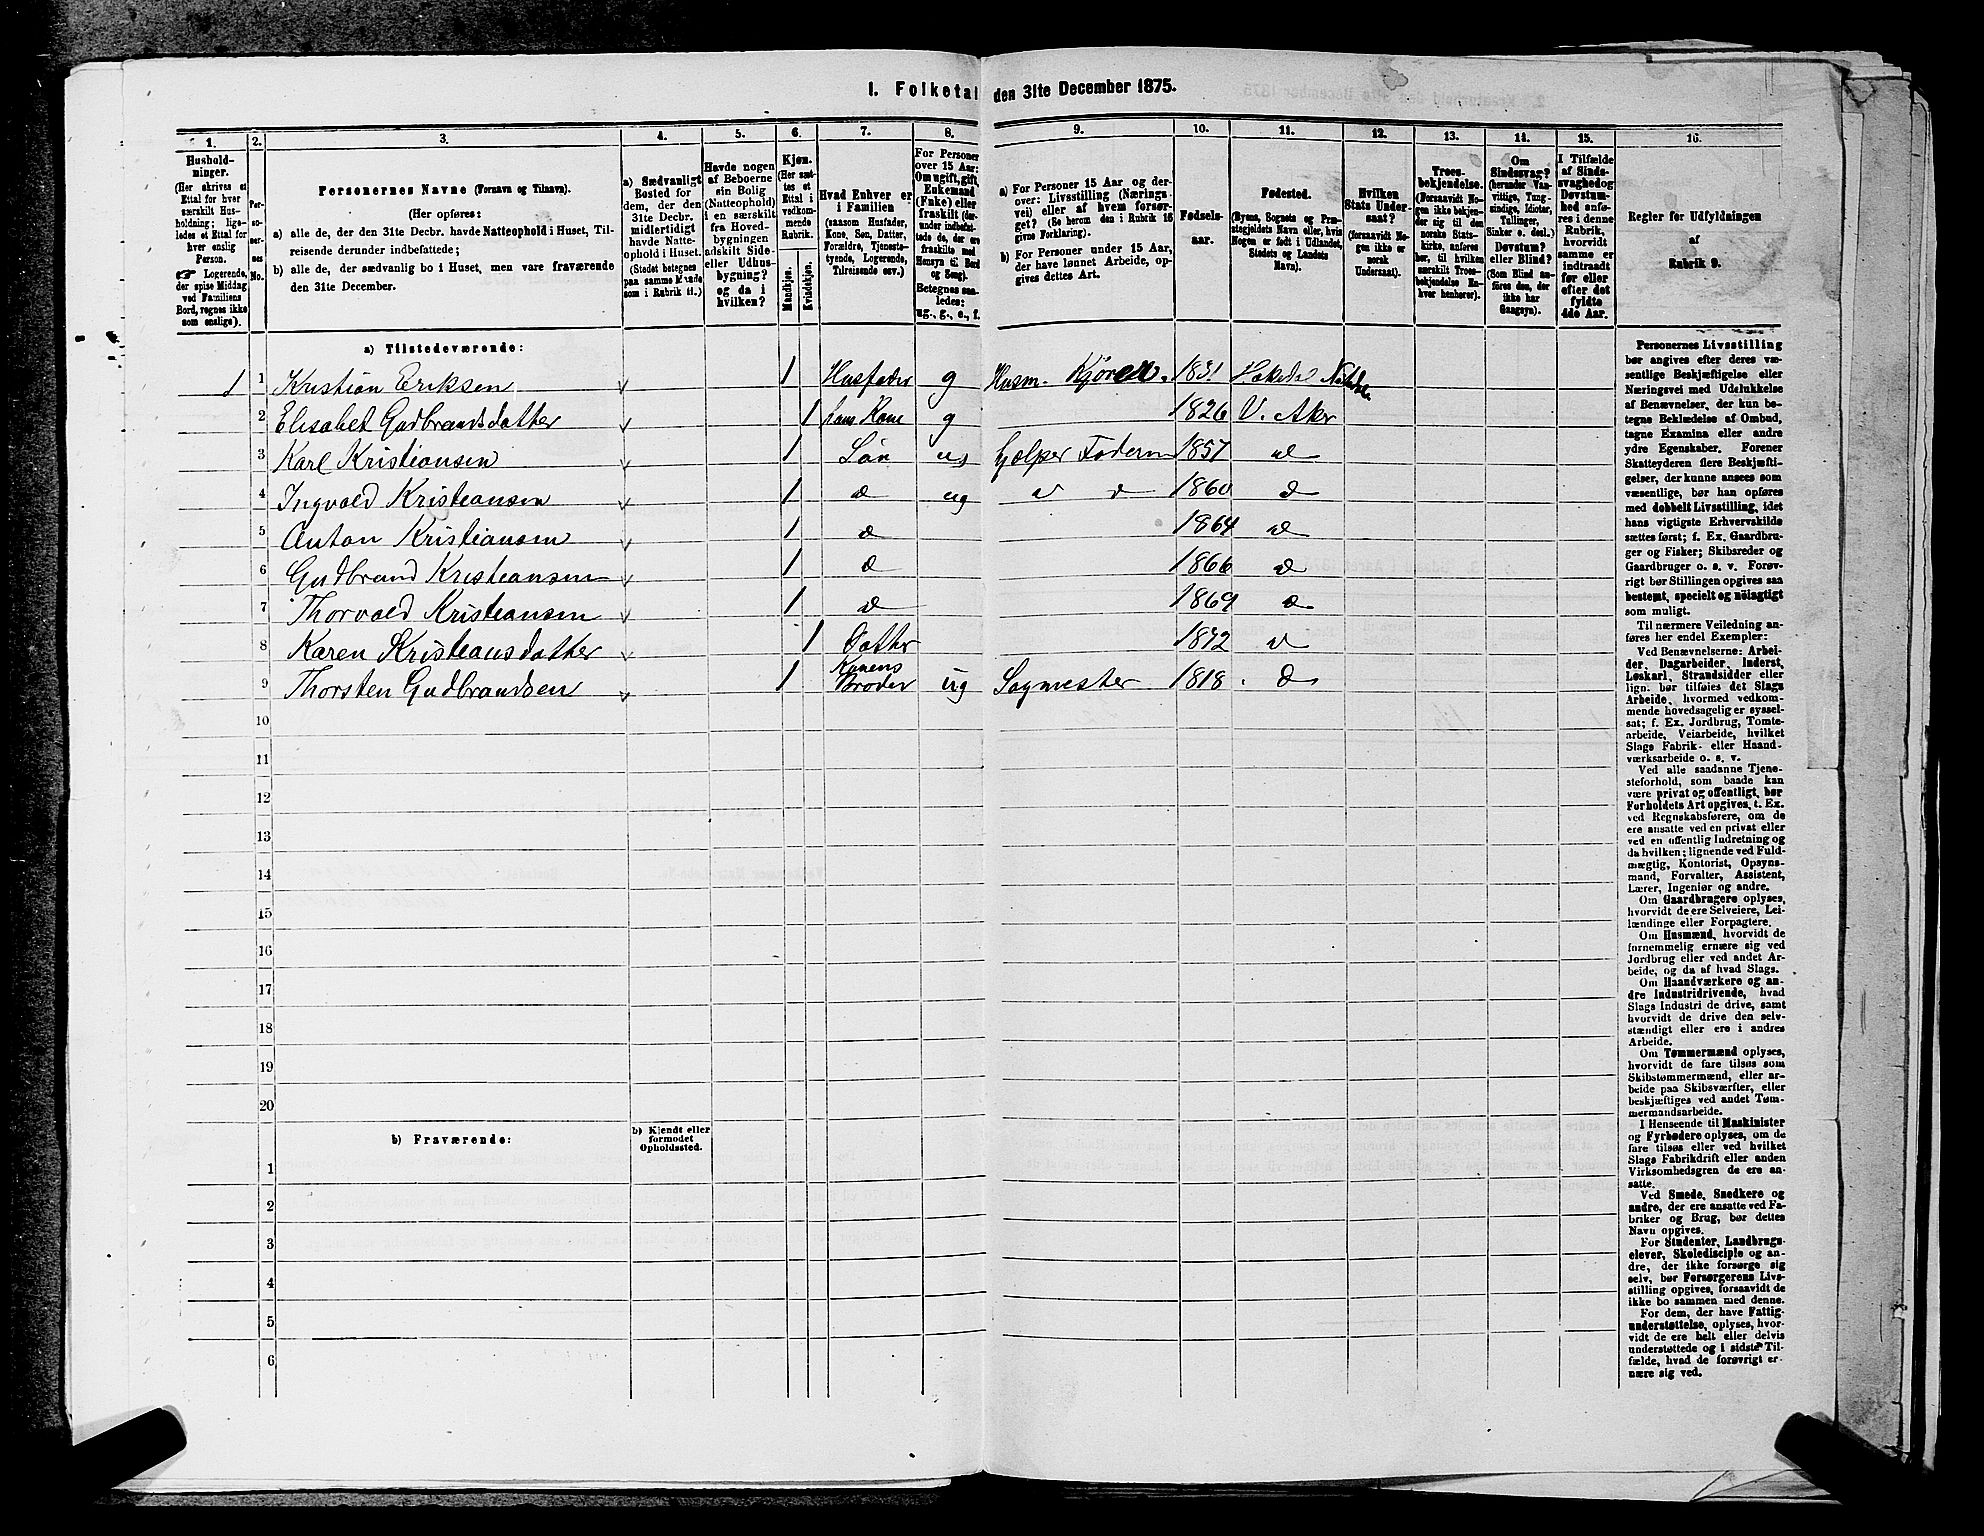 I. Folketal den 31te December 1875.
1. 2. 3. 4. 5. 6. 7. 8. 9. 10. 11. 12. 13. 14. 15. 16.
Hushold-
ninger.
(Her skrives et
Ettal for hver
særskilt Hus-
holdning; lige-
ledes et Ettal for
hver enslig
Person.
☞ Logerende,
der spise Middag
ved Familiens
Bord, regnes ikke
som enslige).
Per-
so-
ner-
nes
No.
Personernes Navne (Fornavn og Tilnavn).
(Her opføres:
a) alle de, der den 31te Decbr. havde Natteophold i Huset, Til-
reisende derunder indbefattede;
b) alle de, der sædvanlig bo i Huset, men vare fraværende
den 31te December.
a) Sædvanligt
Bosted for
dem, der den
31te Decbr.
midlertidigt
havde Natte-
ophold i Huset.
(Stedet betegnes
paa samme Maade
som i Rubrik 11.)
Havde nogen
af Beboerne
sin Bolig
(Natteophold)
i en særskilt
fra Hoved-
bygningen
adskilt Side-
eller Udhus-
bygning?
og da i
hvilken?
Kjøn.
(Her sæt-
tes et
Ettal i
vedkom-
mende
Rubrik.
Mandkjøn.
Kvindekjøn.
Hvad Enhver er
i Familien
(saasom Husfader,
Kone, Søn, Datter,
Forældre, Tjeneste-
tyende, Logerende,
Tilreisende osv.)
For Personer
over 15 Aar:
Om ugift, gift,
Enkemand
(Enke) eller
fraskilt (der-
under indbefat-
tede de, der ere
fraskilte med
Hensyn til Bord
og Seng).
Betegnes saa-
ledes:
ug., g., e., f.
a) For Personer 15 Aar og der-
over: Livsstilling (Nærings-
vei) eller af hvem forsør-
get? (Se herom den i Rubrik 16
givne Forklaring).
b) For Personer under 15 Aar,
der have lønnet Arbeide, op-
gives dettes Art.
Fødsels-
aar.
Fødested.
(Byens, Sognets og Præ-
stegjeldets Navn eller, hvis
Nogen er født i Udlandet,
Stedets og Landets
Navn).
Hvilken
Stats Under-
saat?
(forsaavidt No-
gen ikke er
norsk
Undersaat).
Troes-
bekjendelse.
(Forsaavidt No-
gen ikke bekjen-
der sig til den
norske Stats-
kirke, anføres
her, til hvilken
særskilt Troes-
bekjendelse En-
hver henhører).
Om
Sindssvag?
(herunder Van-
vittige, Tung-
sindige, Idioter,
Tullinger,
Sinker o. desl.)
Døvstum?
eller Blind?
(Som Blind an-
føres den, der
ikke har
Gangsyn).
I Tilfælde
af Sinds-
svaghed og
Døvstum-
hed anfø-
res i denne
Rubrik,
hvorvidt
samme er
indtraadt
før eller
efter det
fyldte
4de Aar.
Regler for Udfyldningen
af
Rubrik 9.
a) Tilstedeværende:
1 1 Kristian Eriksen 1 Husfader g Husm. 1831 Hakedal
2 Elisabet Gudbrandsdatter 1 hans Kone g 1826 V. Aker
3 Karl Kristiansen 1 Søn ug hjelper Faderen 1857 d
4 Ingvald Kristiansen 1 d ug d d 1860 d
5 Anton Kristiansen 1 d 1864 d
6 Gudbrand Kristiansen 1 d 1866 d
7 Thorvald Kristiansen 1 d 1869 d
8 Karen Kristiansdatter 1 Datter 1872 d
9 Thorsten Gudbrandsen 1 Konens Broder ug Sagmester 1818 d
10
11
12
13
14
15
16
17
18
19
20
b) Fraværende:
b) Kjendt eller
formodet
Opholdssted.
1
2
3
4
5
6
Personernes Livsstilling
bør angives efter deres væ-
sentlige Beskjæftigelse eller
Næringsvei med Udelukkelse
af Benævnelser, der kun be-
tegne Beklædelse af Ombud,
tagne Examina eller andre
ydre Egenskaber. Forener
Skatteyderen flere Beskjæfti-
gelser, der kunne ansees som
væsentlige, bør han opføres
med dobbelt Livsstilling, idet
hans vigtigste Erhvervskilde
sættes først; f. Ex. Gaardbru-
ger og Fisker; Skibsreder og
Gaardbruger o. s. v. Forøv-
rigt bør Stillingen opgives saa
bestemt, specielt og nøiagtigt
som muligt.
Til nærmere Veiledning an-
føres her endel Exempler:
Ved Benævnelserne: Arbei-
der, Dagarbeider, Inderst,
Løskarl, Strandsidder eller
lign. bør tilføies det Slags
Arbeide, hvormed vedkom-
mende hovedsagelig er syssel-
sat; f. Ex. Jordbrug, Tomte-
arbeide, Veiarbeide, hvilket
Slags Fabrik- eller Haand-
værksarbeide o. s. v.
Ved alle saadanne Tjene-
steforhold, som baade kan
være privat og offentligt, bør
Forholdets Art opgives, t. Ex.
ved Regnskabsførere, om de
ere ansatte ved en privat eller
ved en offentlig Indretning og
da hvilken; lignende ved Fuld-
mægtig, Kontorist, Opsyns-
mand, Forvalter, Assistent,
Lærer, Ingeniør og andre.
Om Gaardbrugere oplyses,
hvorvidt de ere Selveiere, Lei-
lændinge eller Forpagtere.
Om Husmænd, hvorvidt de
fornemmelig ernære sig ved
Jordbrug eller ved andet Ar-
beide, og da af hvad Slags.
Om Haandværkere og an-
dre Industridrivende, hvad
Slags Industri de drive, samt
hvorvidt de drive den selv-
stændigt eller ere i andres
Arbeide.
Om Tømmermænd oplyses,
hvorvidt de fare tilsøs som
Skibstømmermænd, eller ar-
beide paa Skibsværfter, eller
beskjæftiges ved andet Tøm-
mermandsarbeide.
I Henseende til Maskinister
og Fyrbødere oplyses, om de
fare tilsøs eller ved hvilket
Slags Fabrikdrift eller anden
Virksomhedsgren de ere an-
satte.
Ved Smede, Snedkere og
andre, der ere ansatte ved Fa-
briker og Brug, bør dettes
Navn opgives.
For Studenter, Landbrugs-
elever, Skoledisciple og an-
dre, der ikke forsørge sig
selv, bør Forsørgerens Livs-
stilling opgives, forsaavidt de
ikke bo sammen med denne.
For dem, der have Fattig-
understøttelse, oplyses, hvor-
vidt de ere helt eller delvis
understøttede og i sidste Til-
fælde, hvad de forøvrigt er-
nære sig ved.